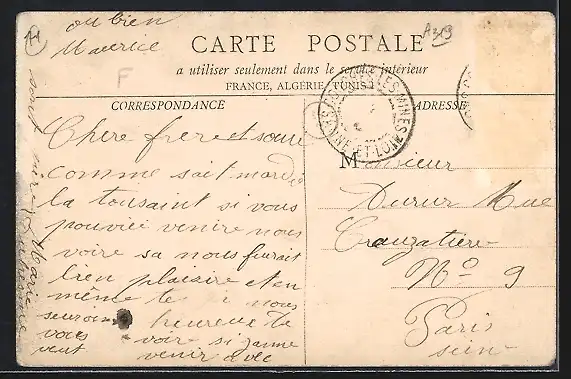 ou bien
Maurice
A29
F
CARTE POSTALE
a utiliser seulement dans le service intérieur
FRANCE, ALGÉRIE, TUNISIE
CORRESPONDANCE
ADRESSE
MINES
SAONE-ET-LOIRE
Chere frere et soeur
comme sait mardi
la tousaint si vous
pouviéz venire nous
voire sa nous furait
bien plaisire et en
même te nous
seuroin heureue te
vous voir si jamme
veut venir avec
Monsieur
Durur Rue
Crouzatiere
No 9
Paris
sein